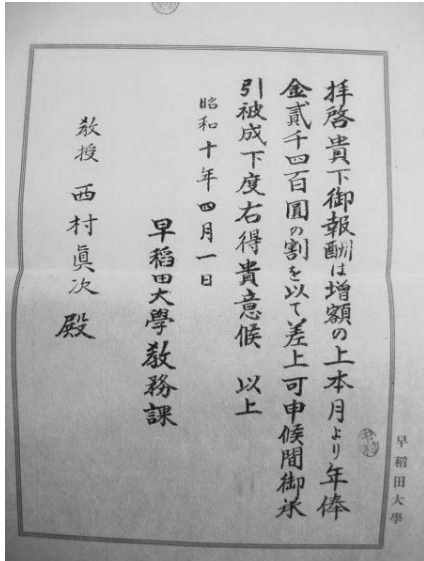 拝啓貴下御報酬は増額の上本月より年俸
金貳千四百圓の割を以て差上可申候間御承
引被成下度右得貴意候　以上
昭和十年四月一日
早稲田大學教務課
教授 西村眞次 殿
早稲田大學